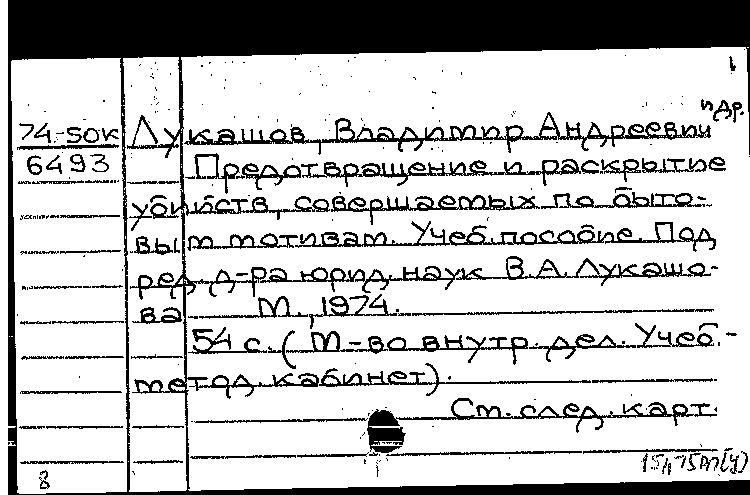 1
и др.
74-50к Лукашов, Владимир Андреевич
6493 Предотвращение и раскрытие
убийств, совершаемых по быто-
вым мотивам. Учеб. пособие. Под
ред. д-ра юрид. наук В.А. Лукашо-
ва М., 1974.
54 с. (М-во внутр. дел. Учеб.-
метод. кабинет).
См. след. карт.
8